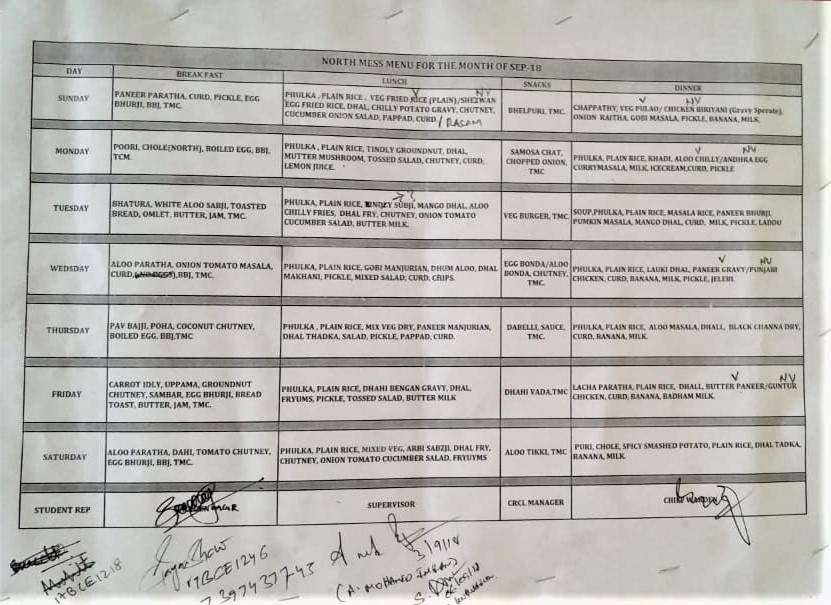 NORTH MESS MENU FOR THE MONTH OF SEP-18
DAY BREAK FAST LUNCH SNACKS DINNER
SUNDAY
PANEER PARATHA, CURD, PICKLE, EGG
BHURJI, BBJ, TMC.
V NV
PHULKA, PLAIN RICE, VEG FRIED RICE (PLAIN)/SHEZWAN
EGG FRIED RICE, DHAL, CHILLY POTATO GRAVY, CHUTNEY,
CUCUMBER ONION SALAD, PAPPAD, CURD / RASAM
BHELPURI, TMC.
V NV
CHAPPATHY, VEG PULAO/ CHICKEN BIRIYANI (Gravy Sperate),
ONION RAITHA, GOBI MASALA, PICKLE, BANANA, MILK.
MONDAY
POORI, CHOLE(NORTH), BOILED EGG, BBJ,
TCM.
PHULKA, PLAIN RICE, TINDLY GROUNDNUT, DHAL,
MUTTER MUSHROOM, TOSSED SALAD, CHUTNEY, CURD,
LEMON JUICE.
SAMOSA CHAT,
CHOPPED ONION,
TMC
V NV
PHULKA, PLAIN RICE, KHADI, ALOO CHILLY/ANDHRA EGG
CURRYMASALA, MILK, ICECREAM,CURD, PICKLE
TUESDAY
BHATURA, WHITE ALOO SABJI, TOASTED
BREAD, OMLET, BUTTER, JAM, TMC.
PHULKA, PLAIN RICE, SUBJI, MANGO DHAL, ALOO
CHILLY FRIES, DHAL FRY, CHUTNEY, ONION TOMATO
CUCUMBER SALAD, BUTTER MILK.
VEG BURGER, TMC.
SOUP,PHULKA, PLAIN RICE, MASALA RICE, PANEER BHURJI,
PUMKIN MASALA, MANGO DHAL, CURD, MILK, PICKLE, LADDU
WEDSDAY
ALOO PARATHA, ONION TOMATO MASALA,
CURD, BBJ, TMC.
PHULKA, PLAIN RICE, GOBI MANJURIAN, DHUM ALOO, DHAL
MAKHANI, PICKLE, MIXED SALAD, CURD, CHIPS.
EGG BONDA/ALOO
BONDA, CHUTNEY,
TMC.
V NV
PHULKA, PLAIN RICE, LAUKI DHAL, PANEER GRAVY/PUNJABI
CHICKEN, CURD, BANANA, MILK, PICKLE, JELEBI.
THURSDAY
PAV BAJJI, POHA, COCONUT CHUTNEY,
BOILED EGG, BBJ,TMC
PHULKA, PLAIN RICE, MIX VEG DRY, PANEER MANJURIAN,
DHAL THADKA, SALAD, PICKLE, PAPPAD, CURD.
DABELLI, SAUCE,
TMC.
PHULKA, PLAIN RICE, ALOO MASALA, DHALL, BLACK CHANNA DRY,
CURD, BANANA, MILK.
FRIDAY
CARROT IDLY, UPPAMA, GROUNDNUT
CHUTNEY, SAMBAR, EGG BHURJI, BREAD
TOAST, BUTTER, JAM, TMC.
PHULKA, PLAIN RICE, DHAHI BENGAN GRAVY, DHAL,
FRYUMS, PICKLE, TOSSED SALAD, BUTTER MILK
DHAHI VADA,TMC
V NV
LACHA PARATHA, PLAIN RICE, DHALL, BUTTER PANEER/GUNTUR
CHICKEN, CURD, BANANA, BADHAM MILK.
SATURDAY
ALOO PARATHA, DAHI, TOMATO CHUTNEY,
EGG BHURJI, BBJ, TMC.
PHULKA, PLAIN RICE, MIXED VEG, ARBI SABZJI, DHAL FRY,
CHUTNEY, ONION TOMATO CUCUMBER SALAD, FRYUYMS
ALOO TIKKI, TMC
PURI, CHOLE, SPICY SMASHED POTATO, PLAIN RICE, DHAL TADKA,
BANANA, MILK.
STUDENT REP SUPERVISOR CRCL MANAGER CHIEF WARDEN
17BCE1218
17BCE1246
7397437743
3/9/18
(A. MOHAMED IMRAN)